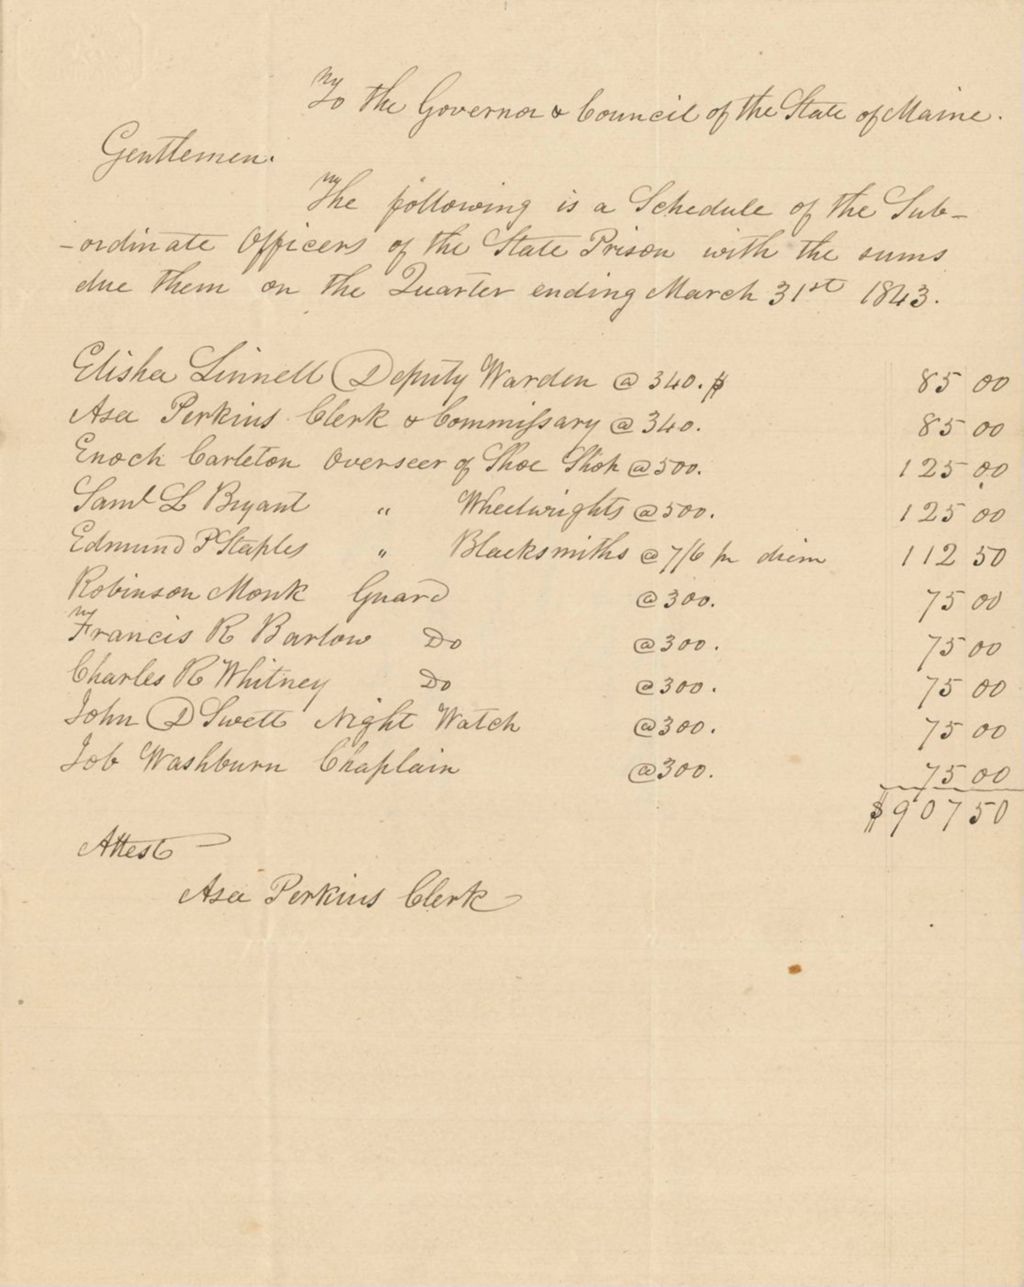 To the Governor & Council of the State of Maine.
Gentlemen.
The following is a Schedule of the Sub-
-ordinate Officers of the State Prison with the sums
due them on the Quarter ending March 31st 1843.
Elisha Linnell Deputy Warden @ 340. $ 85 00
Asa Perkins Clerk & Commissary @ 340. 85 00
Enoch Carleton Overseer of Shoe Shop @ 500. 125 00
Saml L Bryant " Wheelwrights @ 500. 125 00
Edmund P Staples " Blacksmiths @ 7/6 pr diem 112 50
Robinson Monk Guard @ 300. 75 00
Francis R Barlow Do @ 300. 75 00
Charles R Whitney Do @ 300. 75 00
John D Swett Night Watch @ 300. 75 00
Job Washburn Chaplain @ 300. 75 00
$907 50
Attest
Asa Perkins Clerk